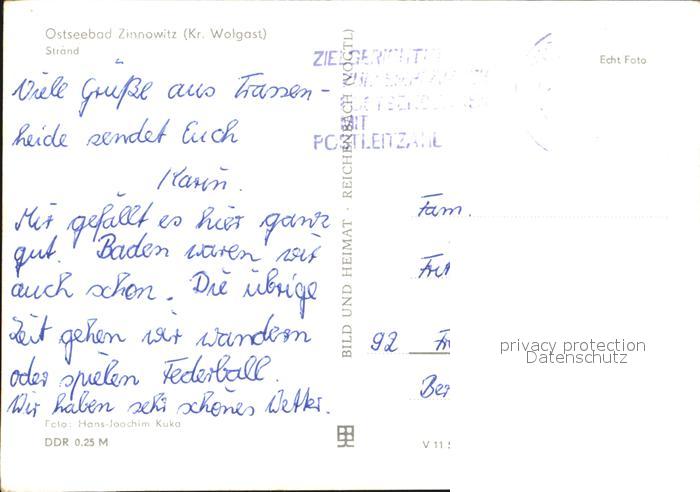 Ostseebad Zinnowitz (Kr. Wolgast)
Strand
Echt Foto
Viele Grüße aus Trassen-
heide sendet Euch
Karin.
Mir gefällt es hier ganz
gut. Baden waren wir
auch schon. Die übrige
Zeit gehen wir wandern
oder spielen Federball.
Wir haben sehr schönes Wetter.
Foto: Hans-Joachim Kuka
DDR 0.25 M
BILD UND HEIMAT · REICHENBACH (VOGTL)
MIT
POSTLEITZAHL
Fam.
92
V 11
privacy protection
Datenschutz